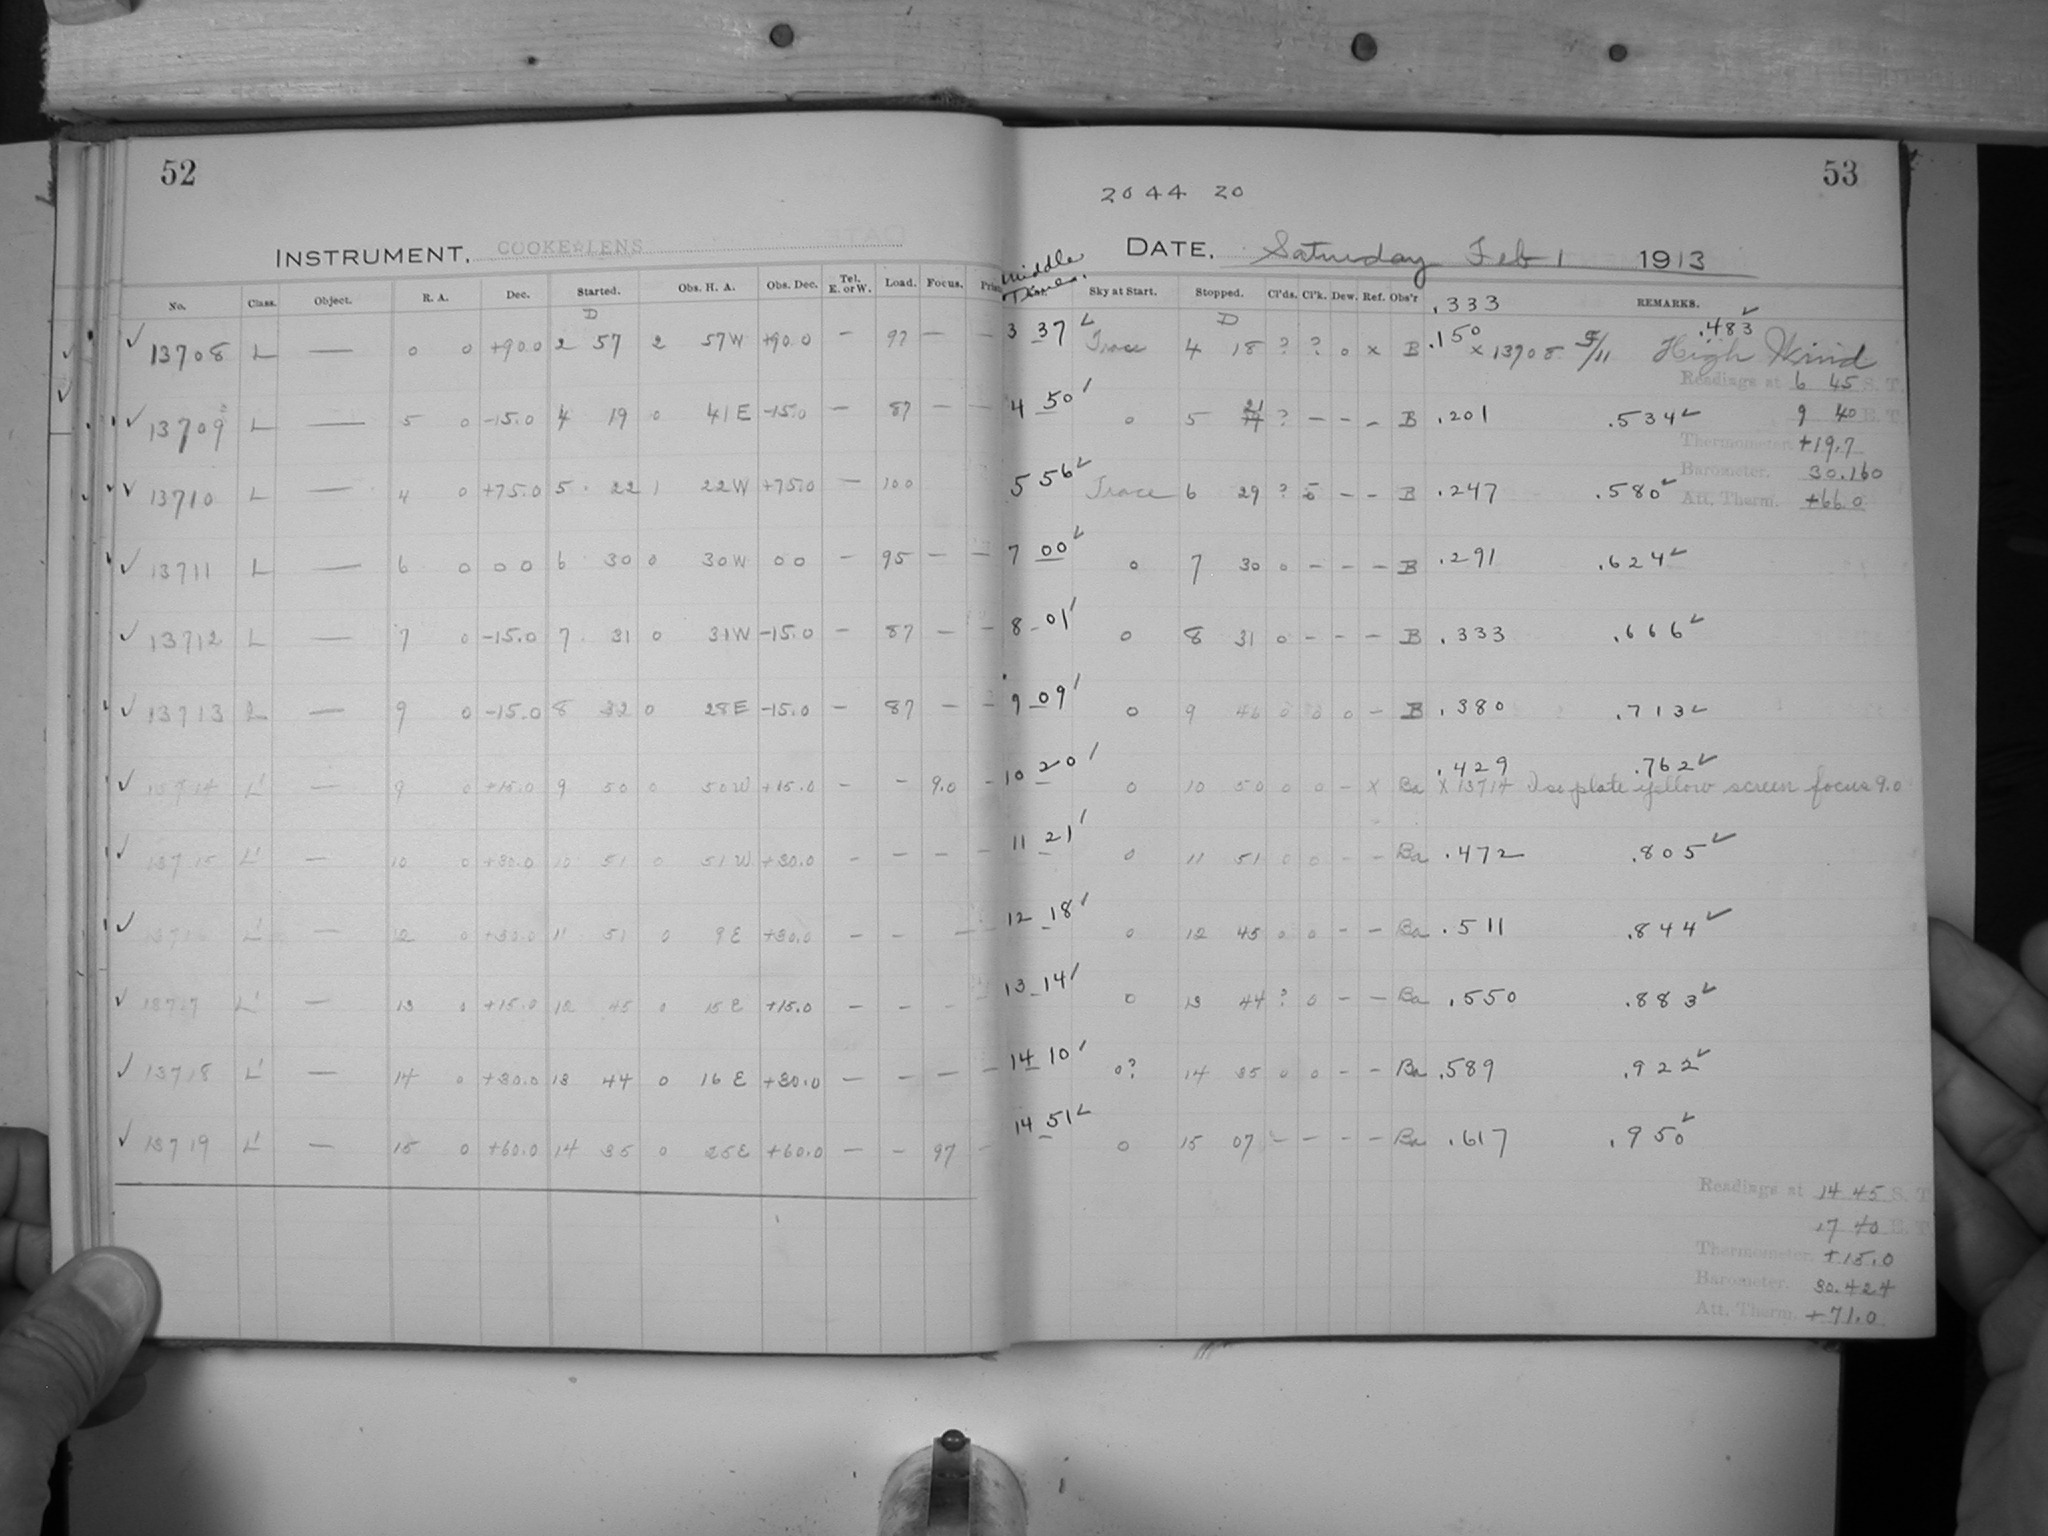 52
53
2044 20
INSTRUMENT. COOKE LENS
DATE. Saturday Feb 1 1913
No. Class. Object. R. A. Dec. Started. Obs. H. A. Obs. Dec. Tel. E. or W. Load. Focus. Middle Times. Sky at Start. Stopped. Cl'ds. Cl'k. Dew. Ref. Obs'r .333 REMARKS.
D D .483 ✓
✓ 13708 L — 0 0 +90.0 2 57 2 57 W +90.0 — 97 — — 3 37 ✓ Trace 4 18 ? ? 0 x B .150 x 13708 F/11 High Wind
Readings at 6 45 S. T.
✓ 13709 L — 5 0 -15.0 4 19 0 41 E -15.0 — 87 — — 4 50 ✓ 0 5 21 ? — — — B .201 .534 ✓ 9 40 E. T.
Thermometer. +19.7
Barometer. 30.160
✓ 13710 L — 4 0 +75.0 5 22 1 22 W +75.0 — 100 5 56 ✓ Trace 6 29 ? 0 — — B .247 .580 ✓ Att. Therm. +66.0
✓ 13711 L — 6 0 0 0 6 30 0 30 W 0 0 — 95 — — 7 00 ✓ 0 7 30 0 — — — B .291 .624 ✓
✓ 13712 L — 7 0 -15.0 7 31 0 31 W -15.0 — 87 — — 8 01 ✓ 0 8 31 0 — — — B .333 .666 ✓
✓ 13713 L — 9 0 -15.0 8 32 0 28 E -15.0 — 87 — — 9 09 ✓ 0 9 46 0 0 0 — B .380 .713 ✓
.429 .762 ✓
✓ 13714 L' — 9 0 +15.0 9 50 0 50 W +15.0 — — 9.0 — 10 20 ✓ 0 10 50 0 0 — x Ba x 13714 Iso plate yellow screen focus 9.0
✓ 13715 L' — 10 0 +30.0 10 51 0 51 W +30.0 — — — — 11 21 ✓ 0 11 51 0 0 — — Ba .472 .805 ✓
✓ L' — 12 0 +30.0 11 51 0 9 E +30.0 — — — — 12 18 ✓ 0 12 45 0 0 — — Ba .511 .844 ✓
✓ L' — 13 0 +15.0 12 45 0 15 E +15.0 — — — — 13 14 ✓ 0 13 44 ? 0 — — Ba .550 .883 ✓
✓ 13718 L' — 14 0 +30.0 13 44 0 16 E +30.0 — — — — 14 10 ✓ 0? 14 35 0 0 — — Ba .589 .922 ✓
✓ 13719 L' — 15 0 +60.0 14 35 0 25 E +60.0 — — 97 — 14 51 ✓ 0 15 07 — — — — Ba .617 .950 ✓
Readings at 14 45 S. T.
17 40 E. T.
Thermometer. +15.0
Barometer. 30.424
Att. Therm. +71.0